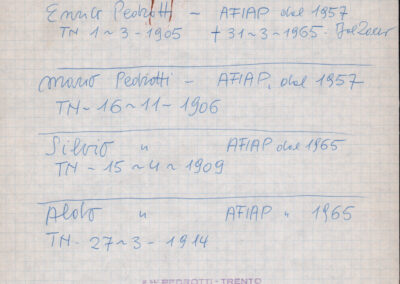 Enrico Pedrotti - AFIAP dal 1957
TN 1-3-1905 † 31-3-1965. Bolzano
Mario Pedrotti - AFIAP, dal 1957
TN-16-11-1906
Silvio " AFIAP dal 1965
TN-15-4-1909
Aldo " AFIAP " 1965
TN-27-3-1914
PEDROTTI-TRENTO